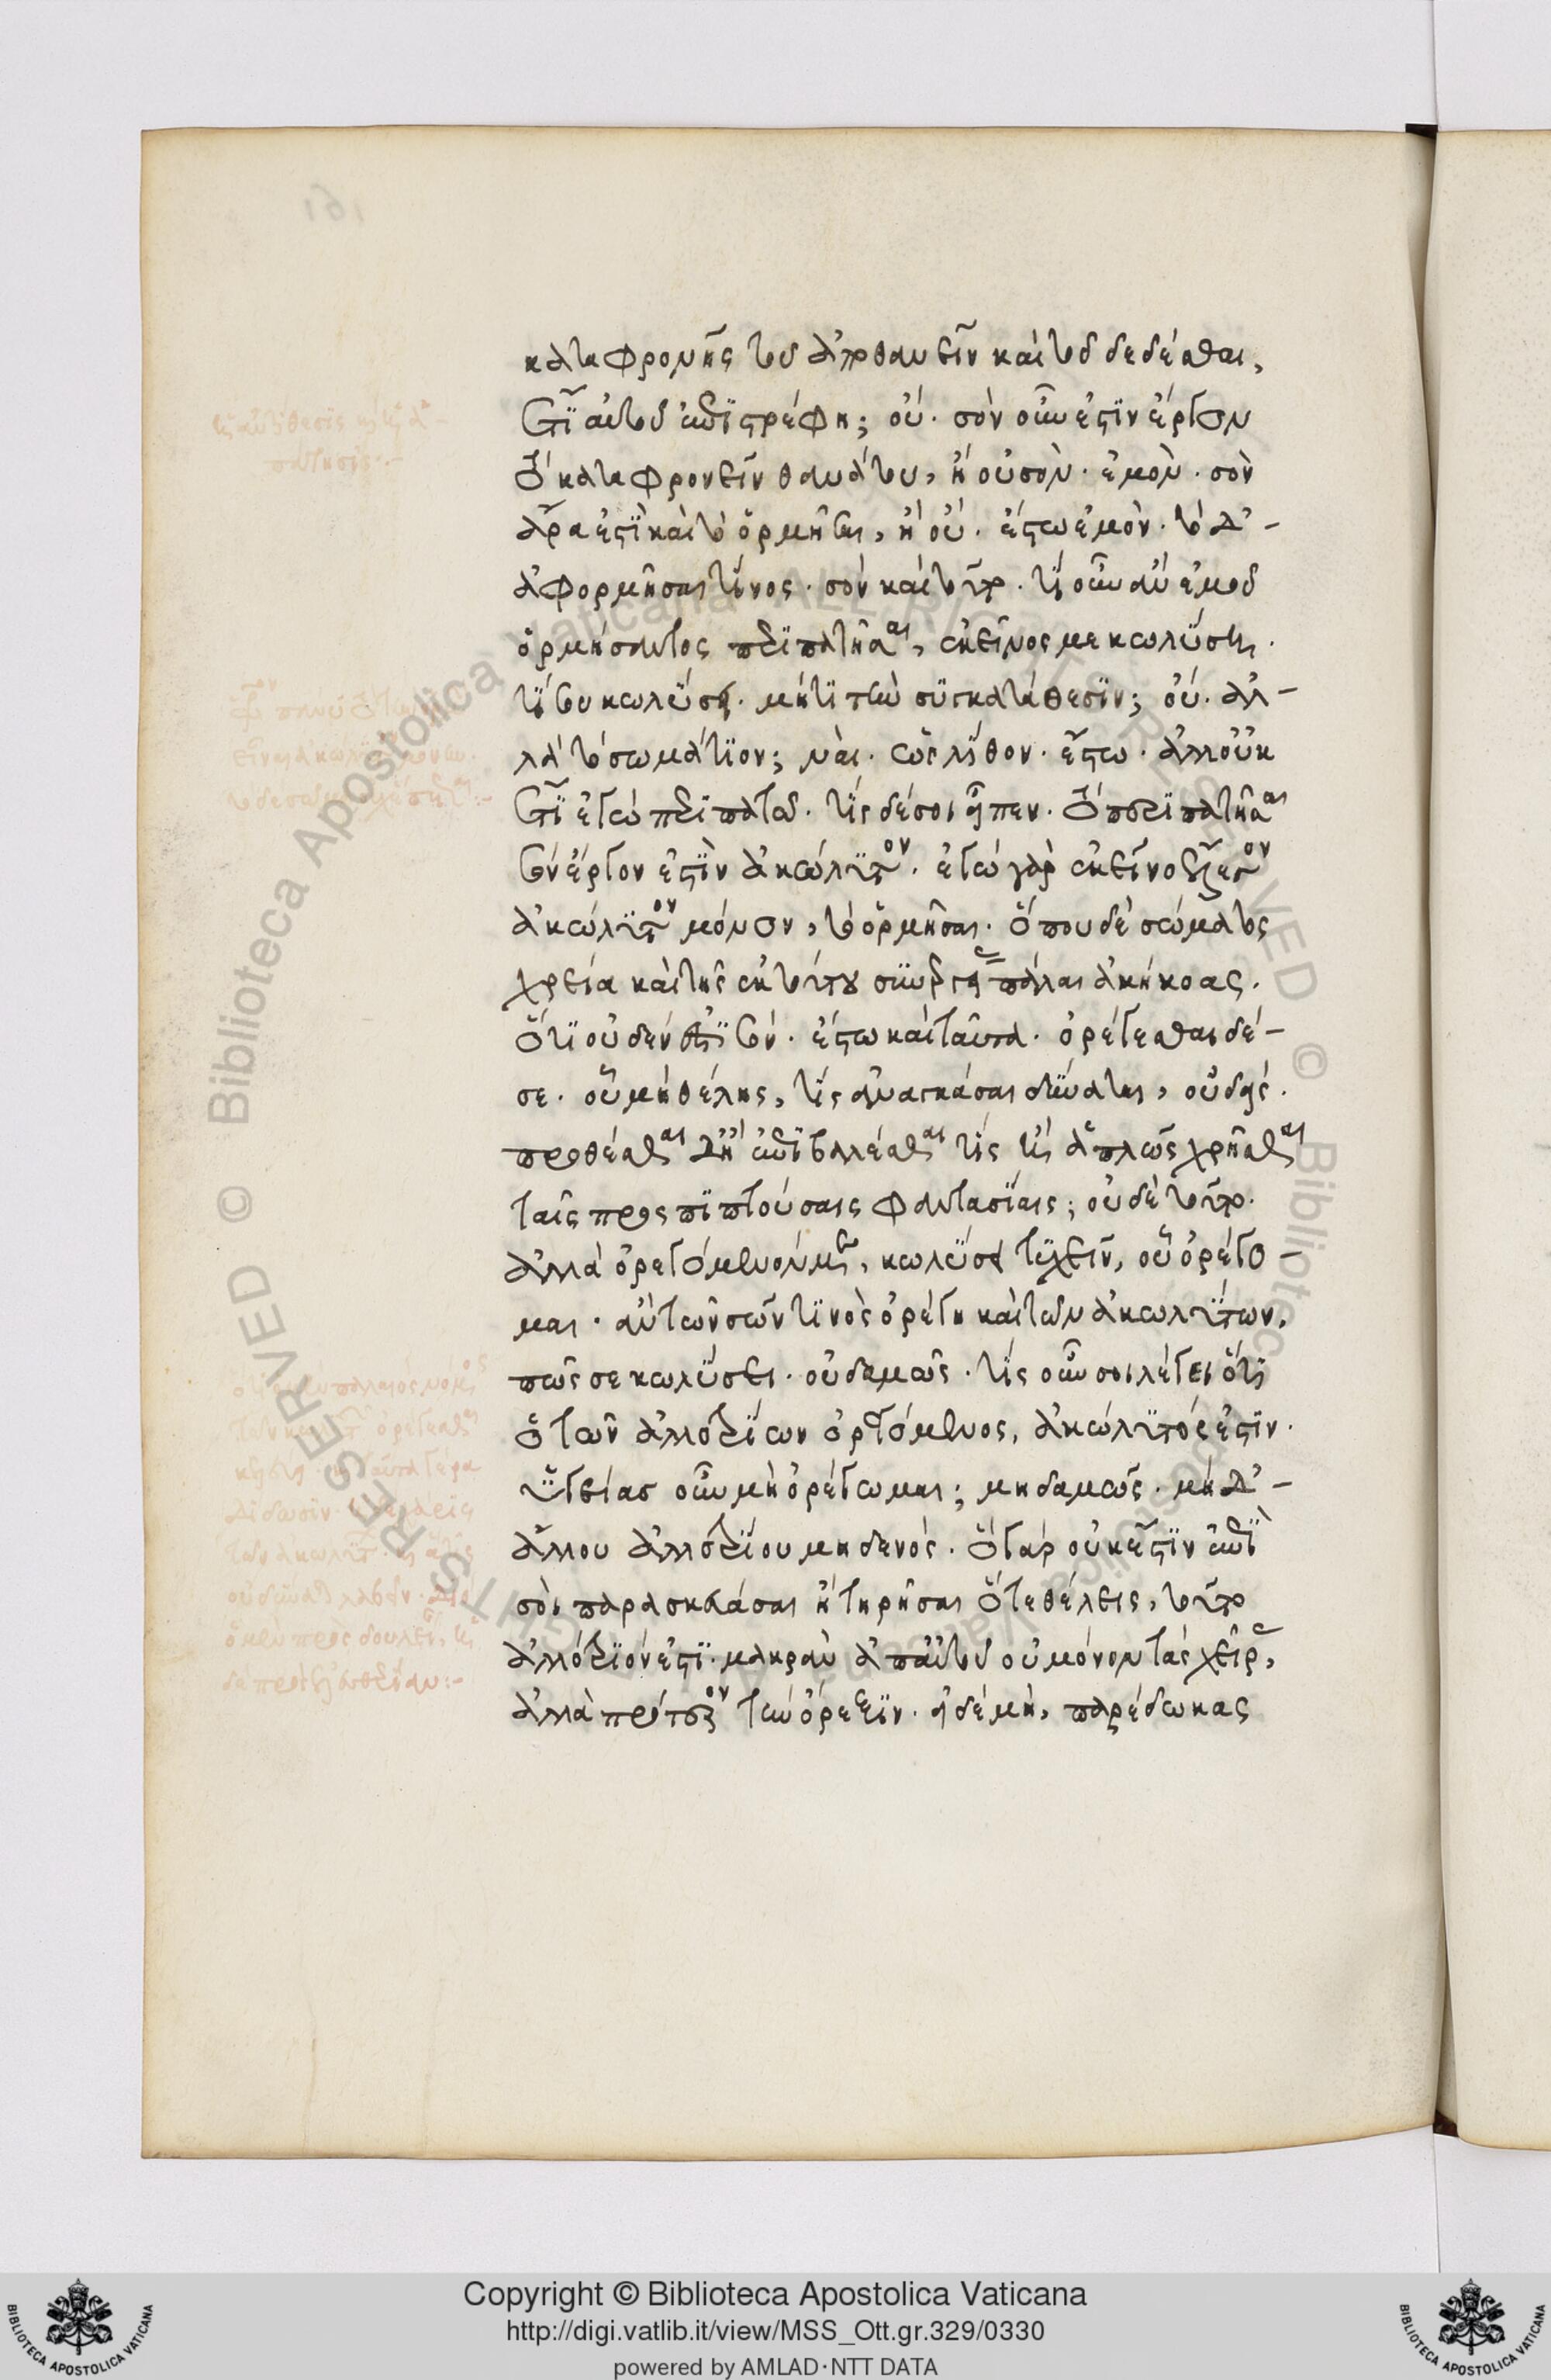 καταφρονῇς τοῦ ἀποθανεῖν καὶ τοῦ δεδέσθαι,
ἔτι αὐτοῦ ἐπιστρέφῃ; οὔ. σὸν οὖν ἐστὶν ἔργον
τὸ καταφρονεῖν θανάτου, ἢ οὐ σόν. ἐμόν. σὸν
ἆρα ἐστὶ καὶ τὸ ὁρμῆσαι, ἢ οὔ. ἔστω ἐμόν. τὸ δ᾽
ἀφορμῆσαι τίνος. σὸν καὶ τοῦτο. τί οὖν ἂν ἐμοῦ
ὁρμήσαντος περιπατῆσαι, ἐκεῖνος με κωλύσῃ.
τί σου κωλύσει. μήτι τὴν συγκατάθεσιν; οὔ. ἀλ-
λὰ τὸ σωμάτιον; ναί. ὡς λίθον. ἔστω. ἀλλ᾽ οὐκ
ἔτι ἐγὼ περιπατῶ. τίς δέ σοι εἶπεν. τὸ περιπατῆσαι
σὸν ἔργον ἐστὶν ἀκώλυτον. ἐγὼ γὰρ ἐκεῖνο ἔλεγον
ἀκώλυτον μόνον, τὸ ὁρμῆσαι. ὅπου δὲ σώματος
χρεία καὶ τῆς ἐκ τούτου συνεργείας πάλαι ἀκήκοας.
ὅτι οὐδέν ἐστι σόν. ἔστω καὶ ταῦτα. ὀρέγεσθαι δέ-
σε. οὗ μὴ θέλῃς, τίς ἀναγκάσαι δύναται, οὐδείς.
προθέσθαι δ᾽ ἢ ἐπιβαλέσθαι τίς ἢ ἁπλῶς χρῆσθαι
ταῖς προσπιπτούσαις φαντασίαις; οὐδὲ τοῦτο.
ἀλλὰ ὀρεγόμενόν με, κωλύσει τυχεῖν, οὗ ὀρέγο-
μαι. ἂν τῶν σῶν τινὸς ὀρέγῃ καὶ τῶν ἀκωλύτων,
πῶς σε κωλύσει. οὐδαμῶς. τίς οὖν σοι λέγει ὅτι
ὁ τῶν ἀλλοτρίων ὀρεγόμενος, ἀκώλυτός ἐστιν.
ὑγείας οὖν μὴ ὀρέγωμαι; μηδαμῶς. μηδ᾽
ἄλλου ἀλλοτρίου μηδενός. ὃ γὰρ οὐκ ἔστιν ἐπὶ
σοὶ παρασκευάσαι ἢ τηρῆσαι ὅτε θέλεις, τοῦτο
ἀλλότριόν ἐστι. μακρὰν ἀπ᾽ αὐτοῦ οὐ μόνον τὰς χεῖρας,
ἀλλὰ πρότερον τὴν ὄρεξιν. εἰ δὲ μή, παρέδωκας
Copyright © Biblioteca Apostolica Vaticana
http://digi.vatlib.it/view/MSS_Ott.gr.329/0330
powered by AMLAD·NTT DATA